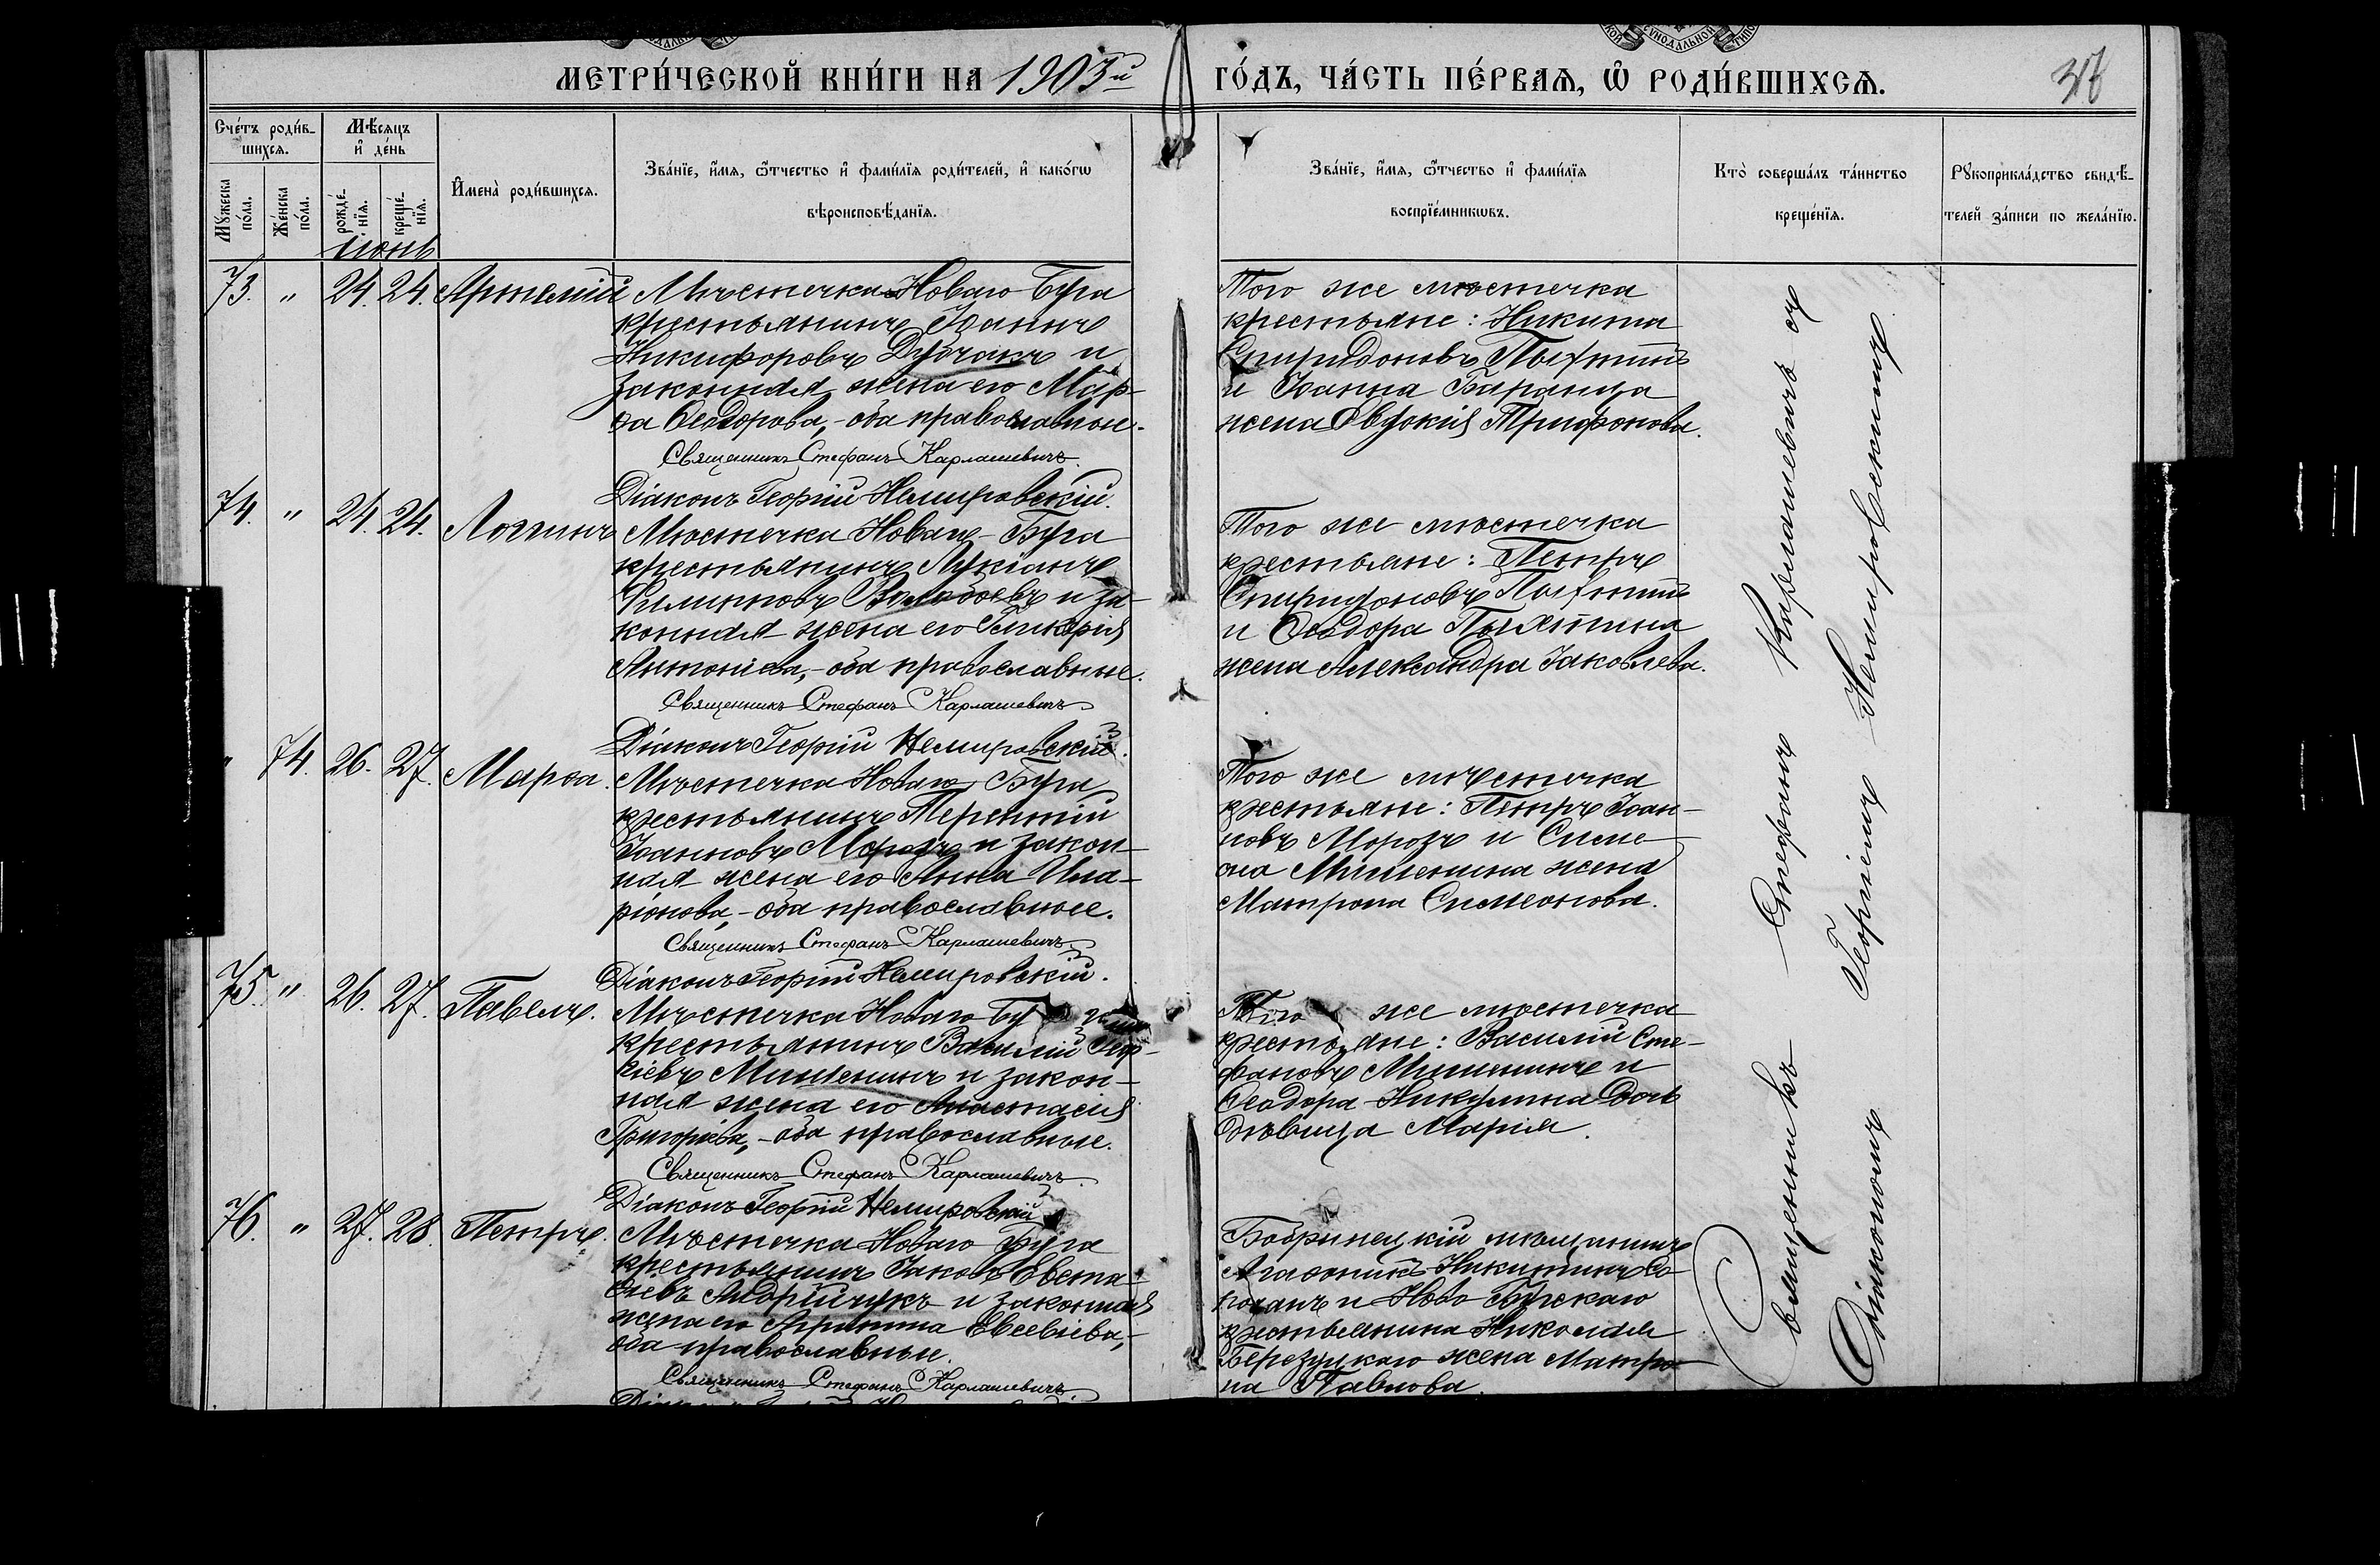 МЕТРИ́ЧЕСКОЙ КНИ́ГИ НА 1903й ГО́ДЪ, ЧА́СТЬ ПЕ́РВАЯ, Ѡ҆ РОДИ́ВШИХСЯ.
Сче́тъ роди́в-
шихся.
Мѣ́сяцъ
и҆ де́нь
Мꙋ́жеска
по́ла.
Же́нска
по́ла.
рожде́-
нїя.
креще́-
нїя.
И҆мена̀ роди́вшихся.
Зва́нїе, и҆́мя, ѻ҆́тчество и҆ фами́лїя роди́телей, и҆ како́гѡ
вѣроисповѣ́данїя.
Зва́нїе, и҆́мя, ѻ҆́тчество и҆ фами́лїя
воспрїе́мникѡвъ.
Кто̀ соверша́лъ та́инство
креще́нїя.
Рꙋкоприкла́дство свидѣ́-
телей за́писи по жела́нїю.
Июнь
73. " 24. 24. Артемій
Мѣстечка Новаго Буга
крестьянинъ Іоаннъ
Никифоровъ Дубчакъ и
законная жена его Мар-
ѳа Ѳеодорова, - оба православные.
Священникъ Стефанъ Карлашевичъ.
Діаконъ Георгій Немировскій.
Того же мѣстечка
крестьяне: Никита
Спиридоновъ Пыхтинъ
и Іоанна Баранца
жена Евдокія Трифонова.
74. " 24. 24. Логгинъ
Мѣстечка Новаго Буга
крестьянинъ Лукіанъ
Филипповъ Волобоевъ и за-
конная жена его Гликерія
Антоніева, - оба православные.
Священникъ Стефанъ Карлашевичъ
Діаконъ Георгій Немировскій.
Того же мѣстечка
крестьяне: Петръ
Спиридоновъ Пыхтинъ
и Ѳеодора Пыхтина
жена Александра Іаковлева.
" 74. 26. 27. Марѳа.
Мѣстечка Новаго Буга
крестьянинъ Терентій
Іоанновъ Морозъ и закон-
ная жена его Анна Ила-
ріонова, - оба православные.
Священникъ Стефанъ Карлашевичъ
Діаконъ Георгій Немировскій.
Того же мѣстечка
крестьяне: Петръ Іоан-
новъ Морозъ и Симе-
она Мишенина жена
Матрона Симеонова.
75. " 26. 27. Павелъ.
Мѣстечка Новаго Буга
крестьянинъ Василій Геор-
гіевъ Мишенинъ и закон-
ная жена его Анастасія
Григоріева, - оба православные.
Священникъ Стефанъ Карлашевичъ.
Діаконъ Георгій Немировскій
Того же мѣстечка
крестьяне: Василій Сте-
фановъ Мишенинъ и
Ѳеодора Никулина дочь
дѣвица Марія.
76. " 27. 28. Петръ.
Мѣстечка Новаго Буга
крестьянинъ Іаковъ Евста-
ѳіевъ Андрійчукъ и законная
жена его Агрипина Евсевіева, -
оба православные.
Священникъ Стефанъ Карлашевичъ.
Бобринецкій мѣщанинъ
Агаѳоникъ Никитинъ
и Ново-Бугскаго
крестьянина Николая
Березуцкаго жена Матро-
на Павлова.
Священникъ Стефанъ Карлашевичъ съ
Діакономъ Георгіемъ Немировскимъ.